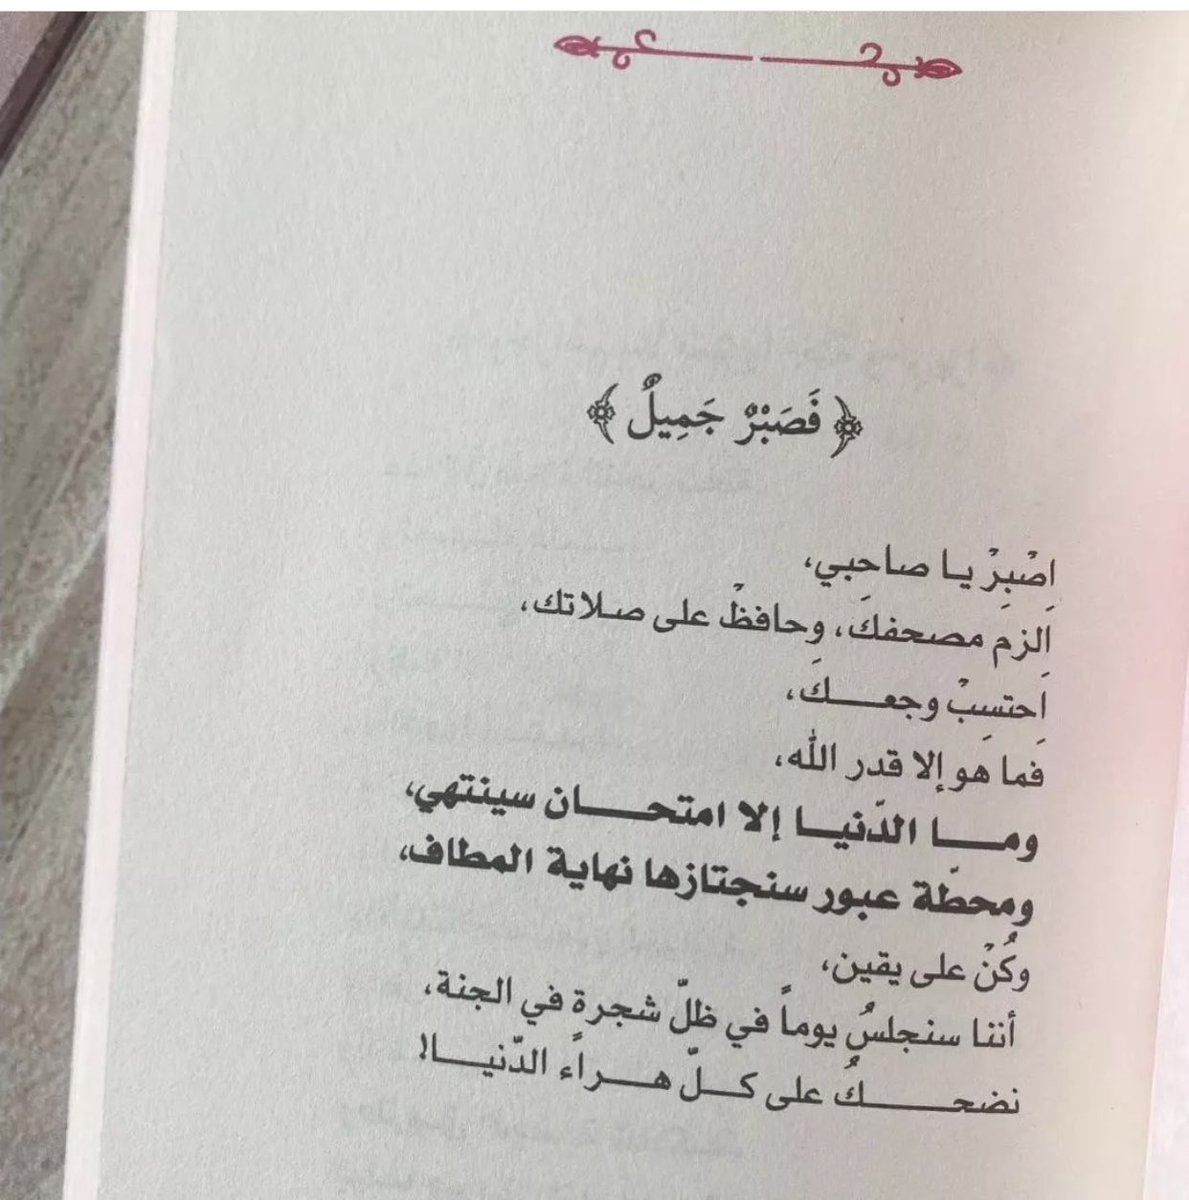 ﴿ فَصَبْرٌ جَمِيلٌ ﴾
اِصْبِرْ يا صاحبي،
اِلزم مصحفكَ، وحافظْ على صلاتك،
اِحتسِبْ وجعكَ،
فما هو إلا قدر الله،
وما الدّنيا إلا امتحان سينتهي،
ومحطّة عبور سنجتازها نهاية المطاف،
وكُنْ على يقين،
أننا سنجلسُ يوماً في ظلّ شجرة في الجنة،
نضحكُ على كلّ هراء الدّنيا!